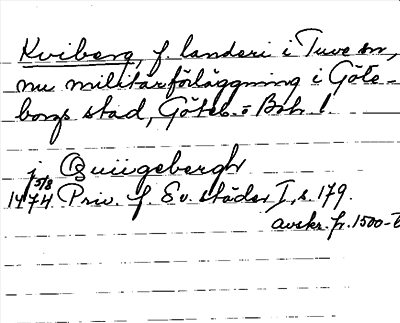 Kviberg, f. landeri i Tuve sn,
nu militärförläggning i Göte-
borgs stad, Göteb. o Boh. l.
j Quiigebergh
5/8
1474. Priv. f. Sv. städer I, s. 179.
avskr. fr. 1500-t